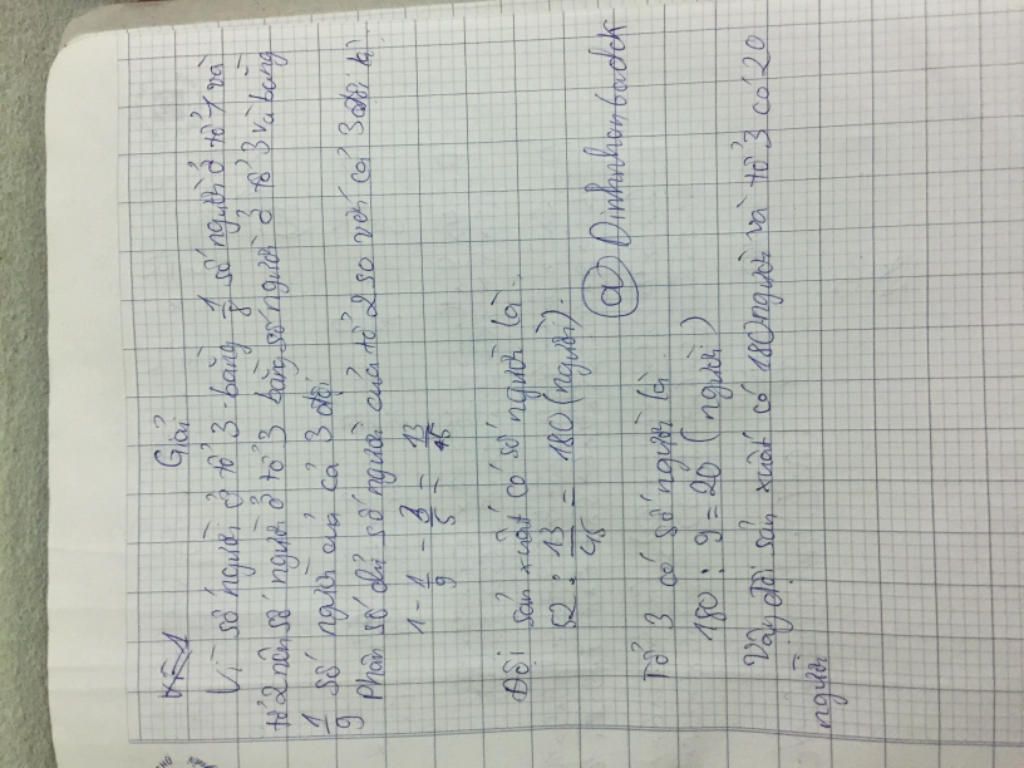 Giải
Vì số người ở tổ 3 bằng 1/8 số người ở tổ 1 và
tổ 2 nên số người ở tổ 3 bằng số người ở tổ 3 và bằng
1/9 số người của cả 3 đội
Phân số chỉ số người của tổ 2 so với cả 3 đội là
1 - 1/9 - 3/5 = 13/45
Đội sản xuất có số người là.
52 : 13/45 = 180 (người).
ⓐ Dinhnhanbaidck
Tổ 3 có số người là
180 : 9 = 20 (người)
Vậy đội sản xuất có 180 người và tổ 3 có 20
người